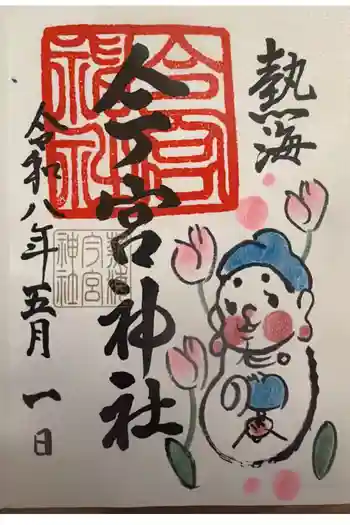 熱海
今宮神社
令和八年五月一日
今宮
神社
熱海
今宮
神社